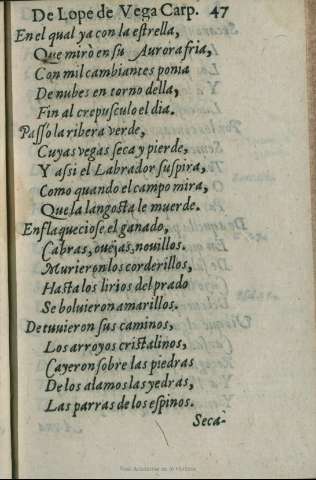 De Lope de Vega Carp. 47
En el qual ya con la estrella,
Que mirò en su Aurora fria,
Con mil cambiantes ponia
De nubes en torno della,
Fin al crepusculo el dia.
Passo la ribera verde,
Cuyas vegas seca y pierde,
Y assi el Labrador suspira,
Como quando el campo mira,
Que la langosta le muerde.
Enflaqueciose el ganado,
Cabras, ouejas, nouillos.
Murieron los corderillos,
Hasta los lirios del prado
Se boluieron amarillos.
Detuuieron sus caminos,
Los arroyos cristalinos,
Cayeron sobre las piedras
De los alamos las yedras,
Las parras de los espinos.
Seca-